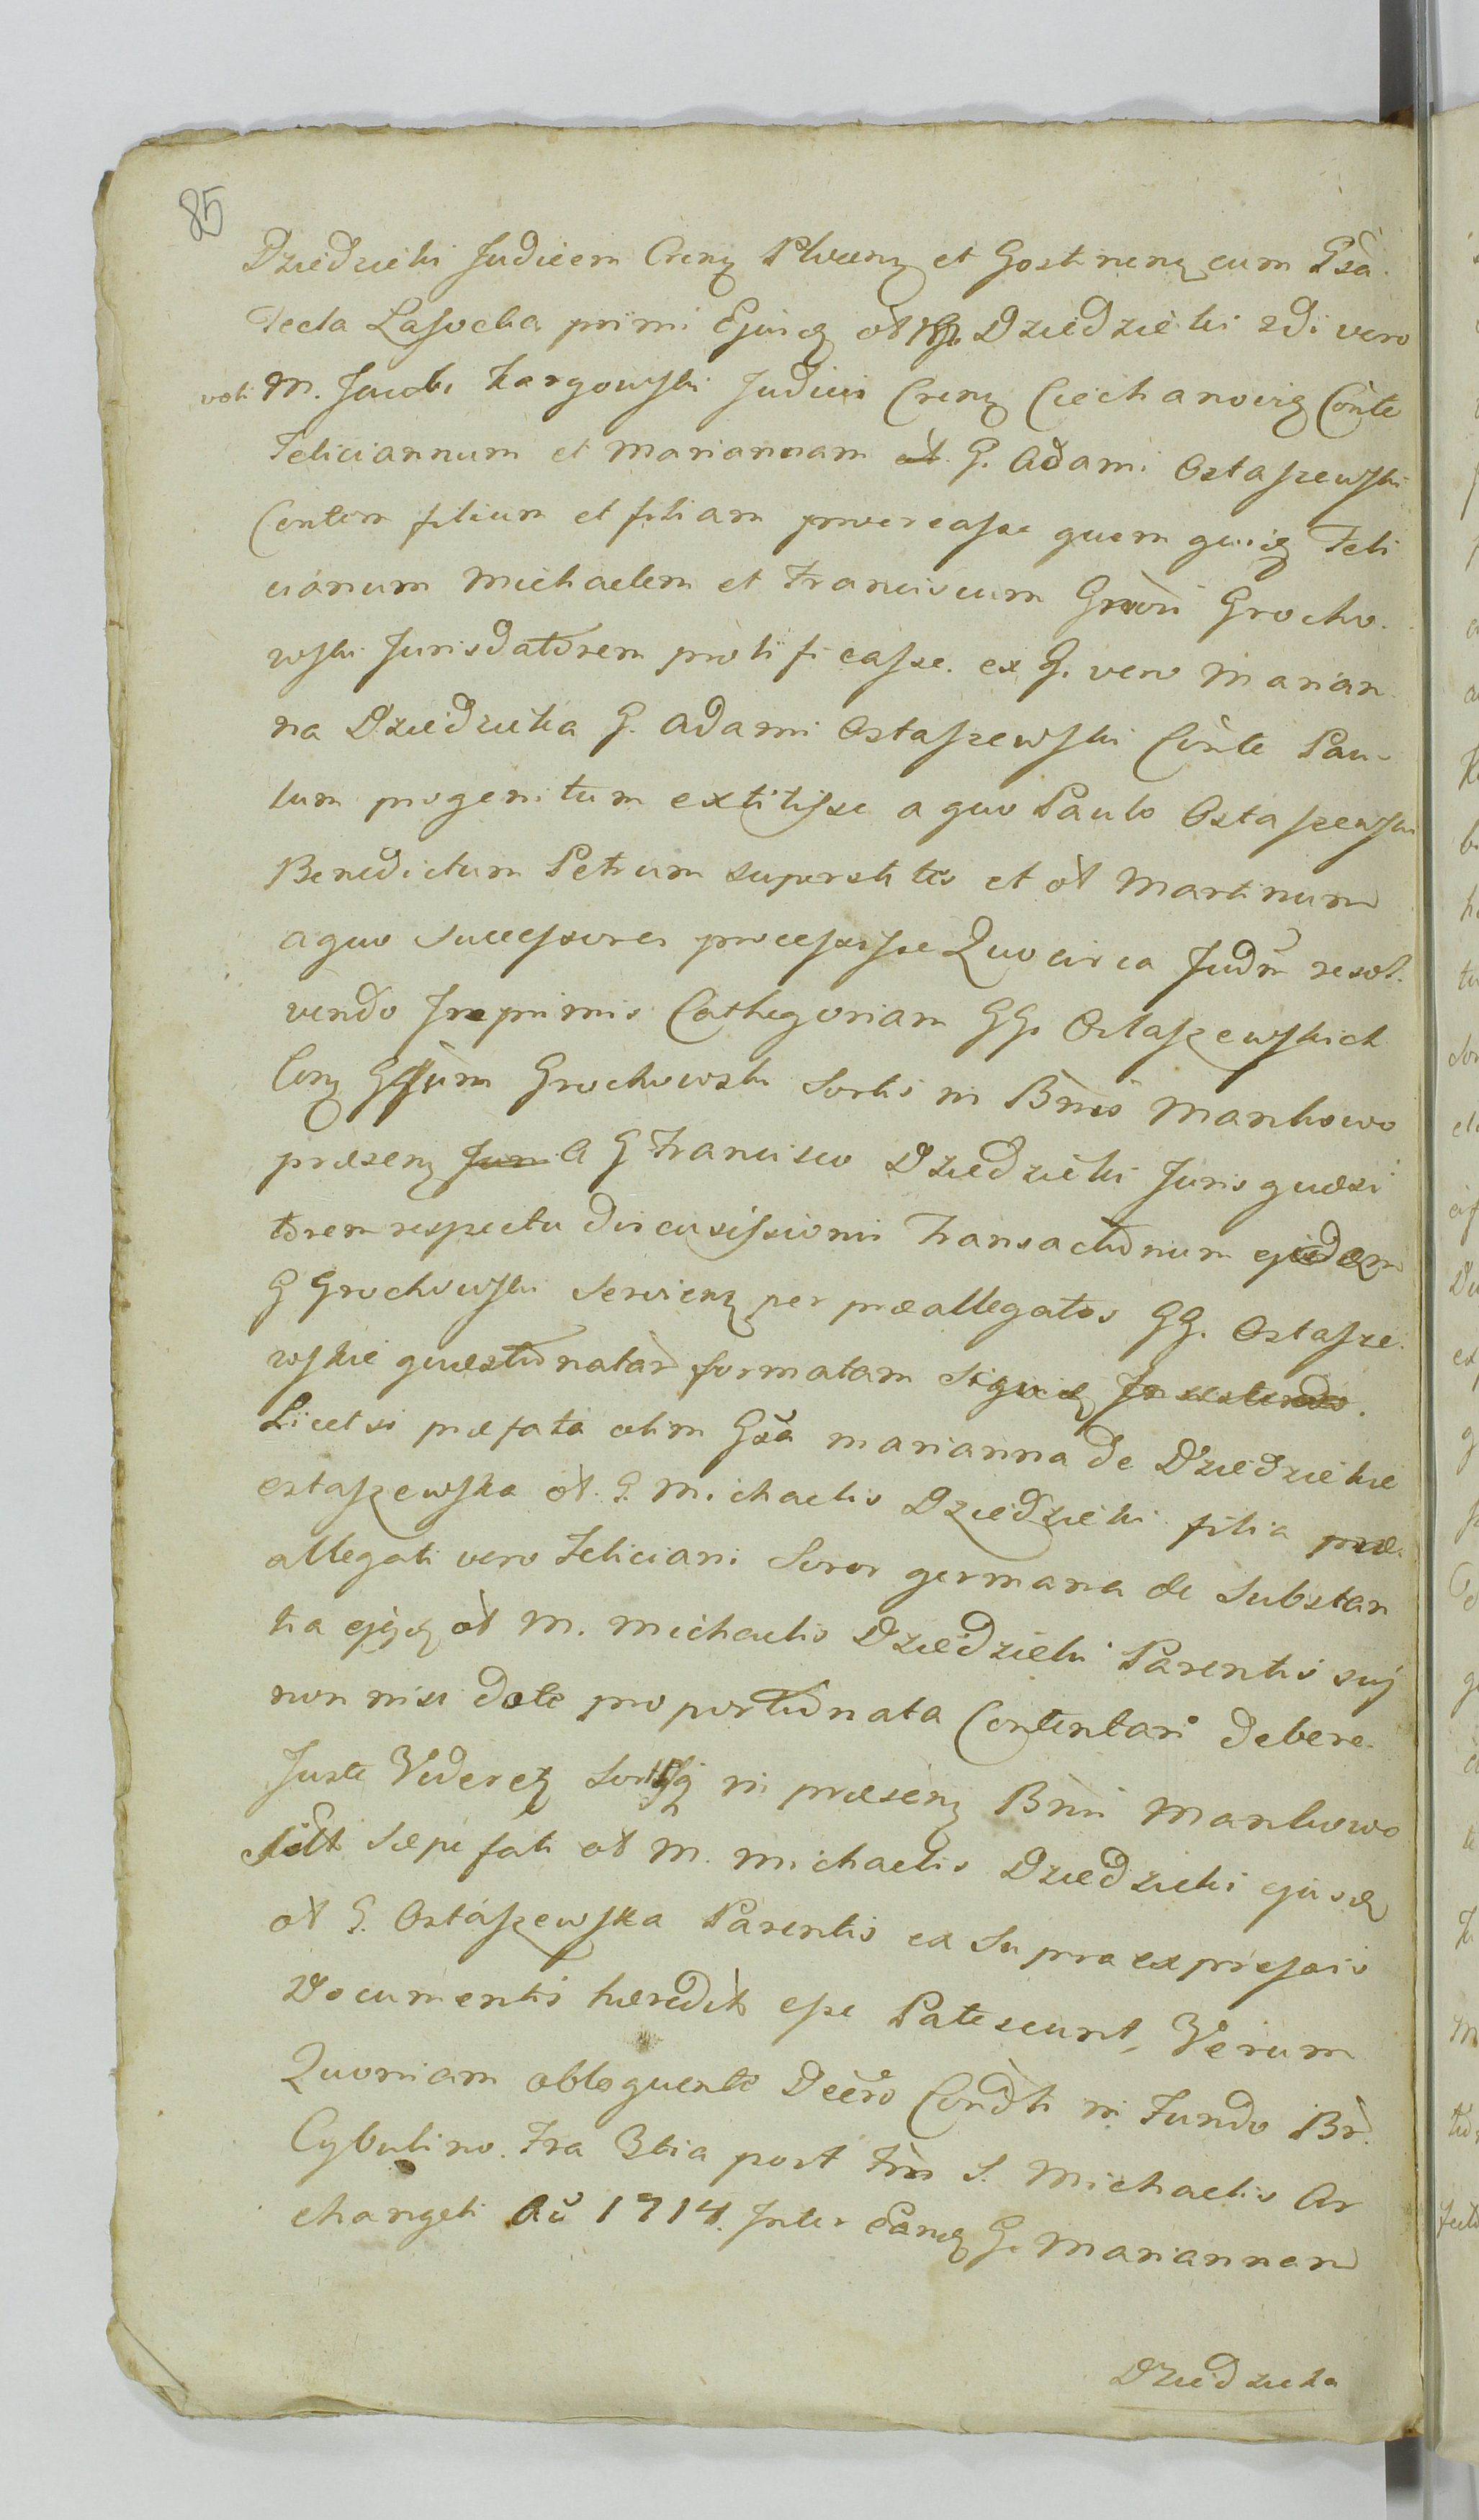 85
Dziedzicki Judicem Crenz Plocenz et Gostinenz cum Gsa
Tecla Lasocka primi Ejusq ol G. Dziedzicki 2di vero
voti M. Jacobi Zargowski Judicis Crenz Ciechanovi Conte
Feliciannum et Mariannam G. Adami Ostaszewski
Contem filium et filiam procreasse quem quidq Feli
cianum Michaelem et Franciscum Grochо
wski Jurisdatorem prolificasse. ex G. vero Marian
na Dziedzicka G. Adami Ostaszewski Conte Pau-
lum progenitum extitisse a quo Paulo Ostaszewski
Benedictum Petrum superstites et ol Martinum
a quo Successores processisse Quocirca Judm resol.
vendo Inprimis Cathegoriam GG. Ostaszewskich
Conz Grochowski Sortis in Bnis Mankowo
præsenz A G Francisco Dziedzicki Juris quæsi
torem respectu discussissionis Transactionum ejusdem
G Grochowski Servienz per præallegatos GG. Ostasze
wskie quæstionatar formatam
Licet si præfata olim Gsa Marianna de Dziedzickie
ostaszewska ol. G. Michaelis Dziedzicki filia præ
allegati vero Feliciani Soror germana de Substan
tia ejusq ol M. Michaelis Dziedzicki Parentis suj
non nisi dote proportionata Contentari debere
Juste Videretz in præsenz Bnis Mankowo
sæpe fati ol M. Michaelis Dziedzicki ejusdq
ol G. Ostaszewska Parentis ex Supra expressis
Documentis hæredit esse Patescunt, Verum
Quoniam obloquente Decro Condti in Fundo Br.
Cybulino. Fra 3tia post Fm S. Michaelis Ar
changeli Ao 1714. Inter eandq G. Mariannam
Dziedzicka